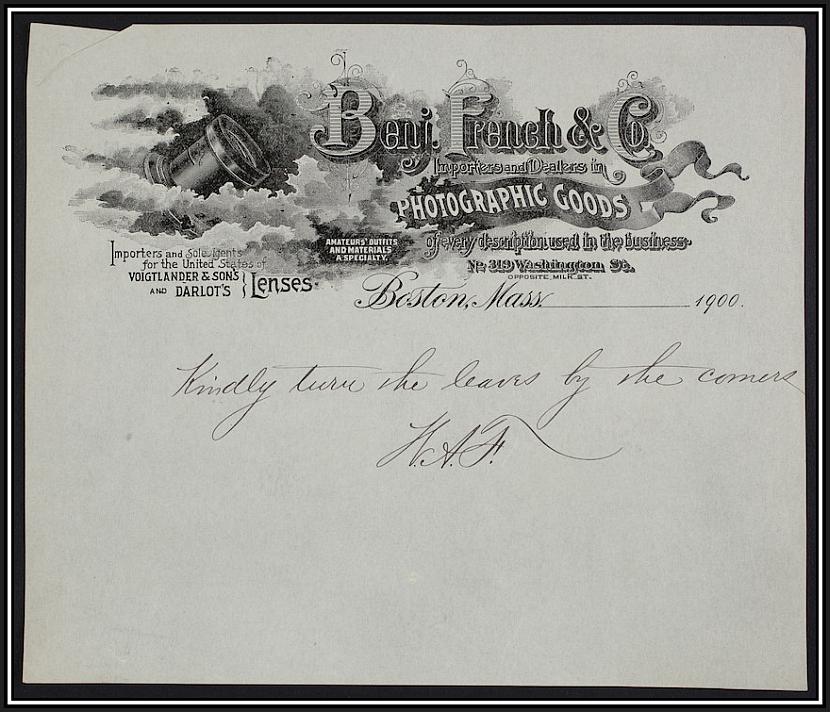 Benj. French & Co.
Importers and Dealers in
PHOTOGRAPHIC GOODS
of every description used in the business
AMATEURS' OUTFITS
AND MATERIALS
A SPECIALTY.
No. 319 Washington St.
OPPOSITE MILK ST.
Importers and Sole Agents
for the United States of
VOIGTLANDER & SON'S
AND DARLOT'S } Lenses.
Boston, Mass. 1900.
Kindly turn the leaves by the corners
W.A.F.